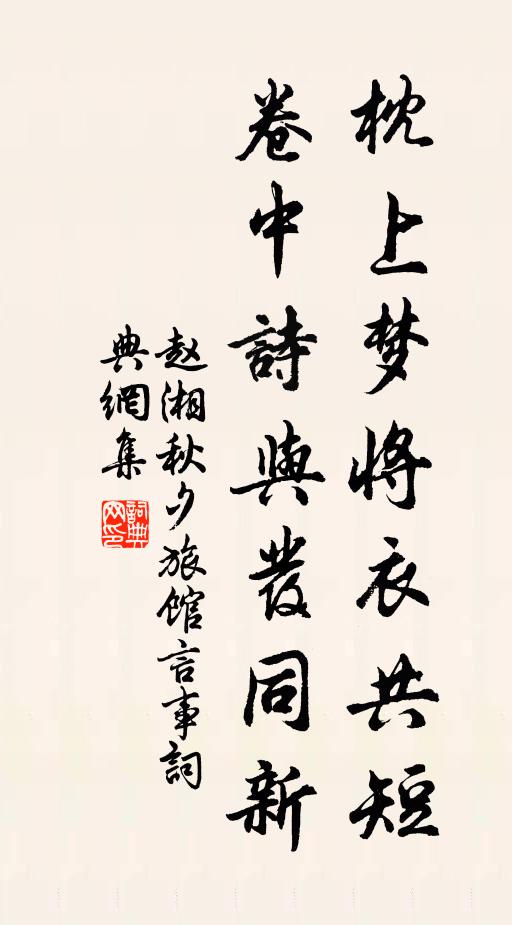 枕上梦将衣共短
卷中詩與發同新
赵湘秋夕旅館言事詞
典網集
詞典网印